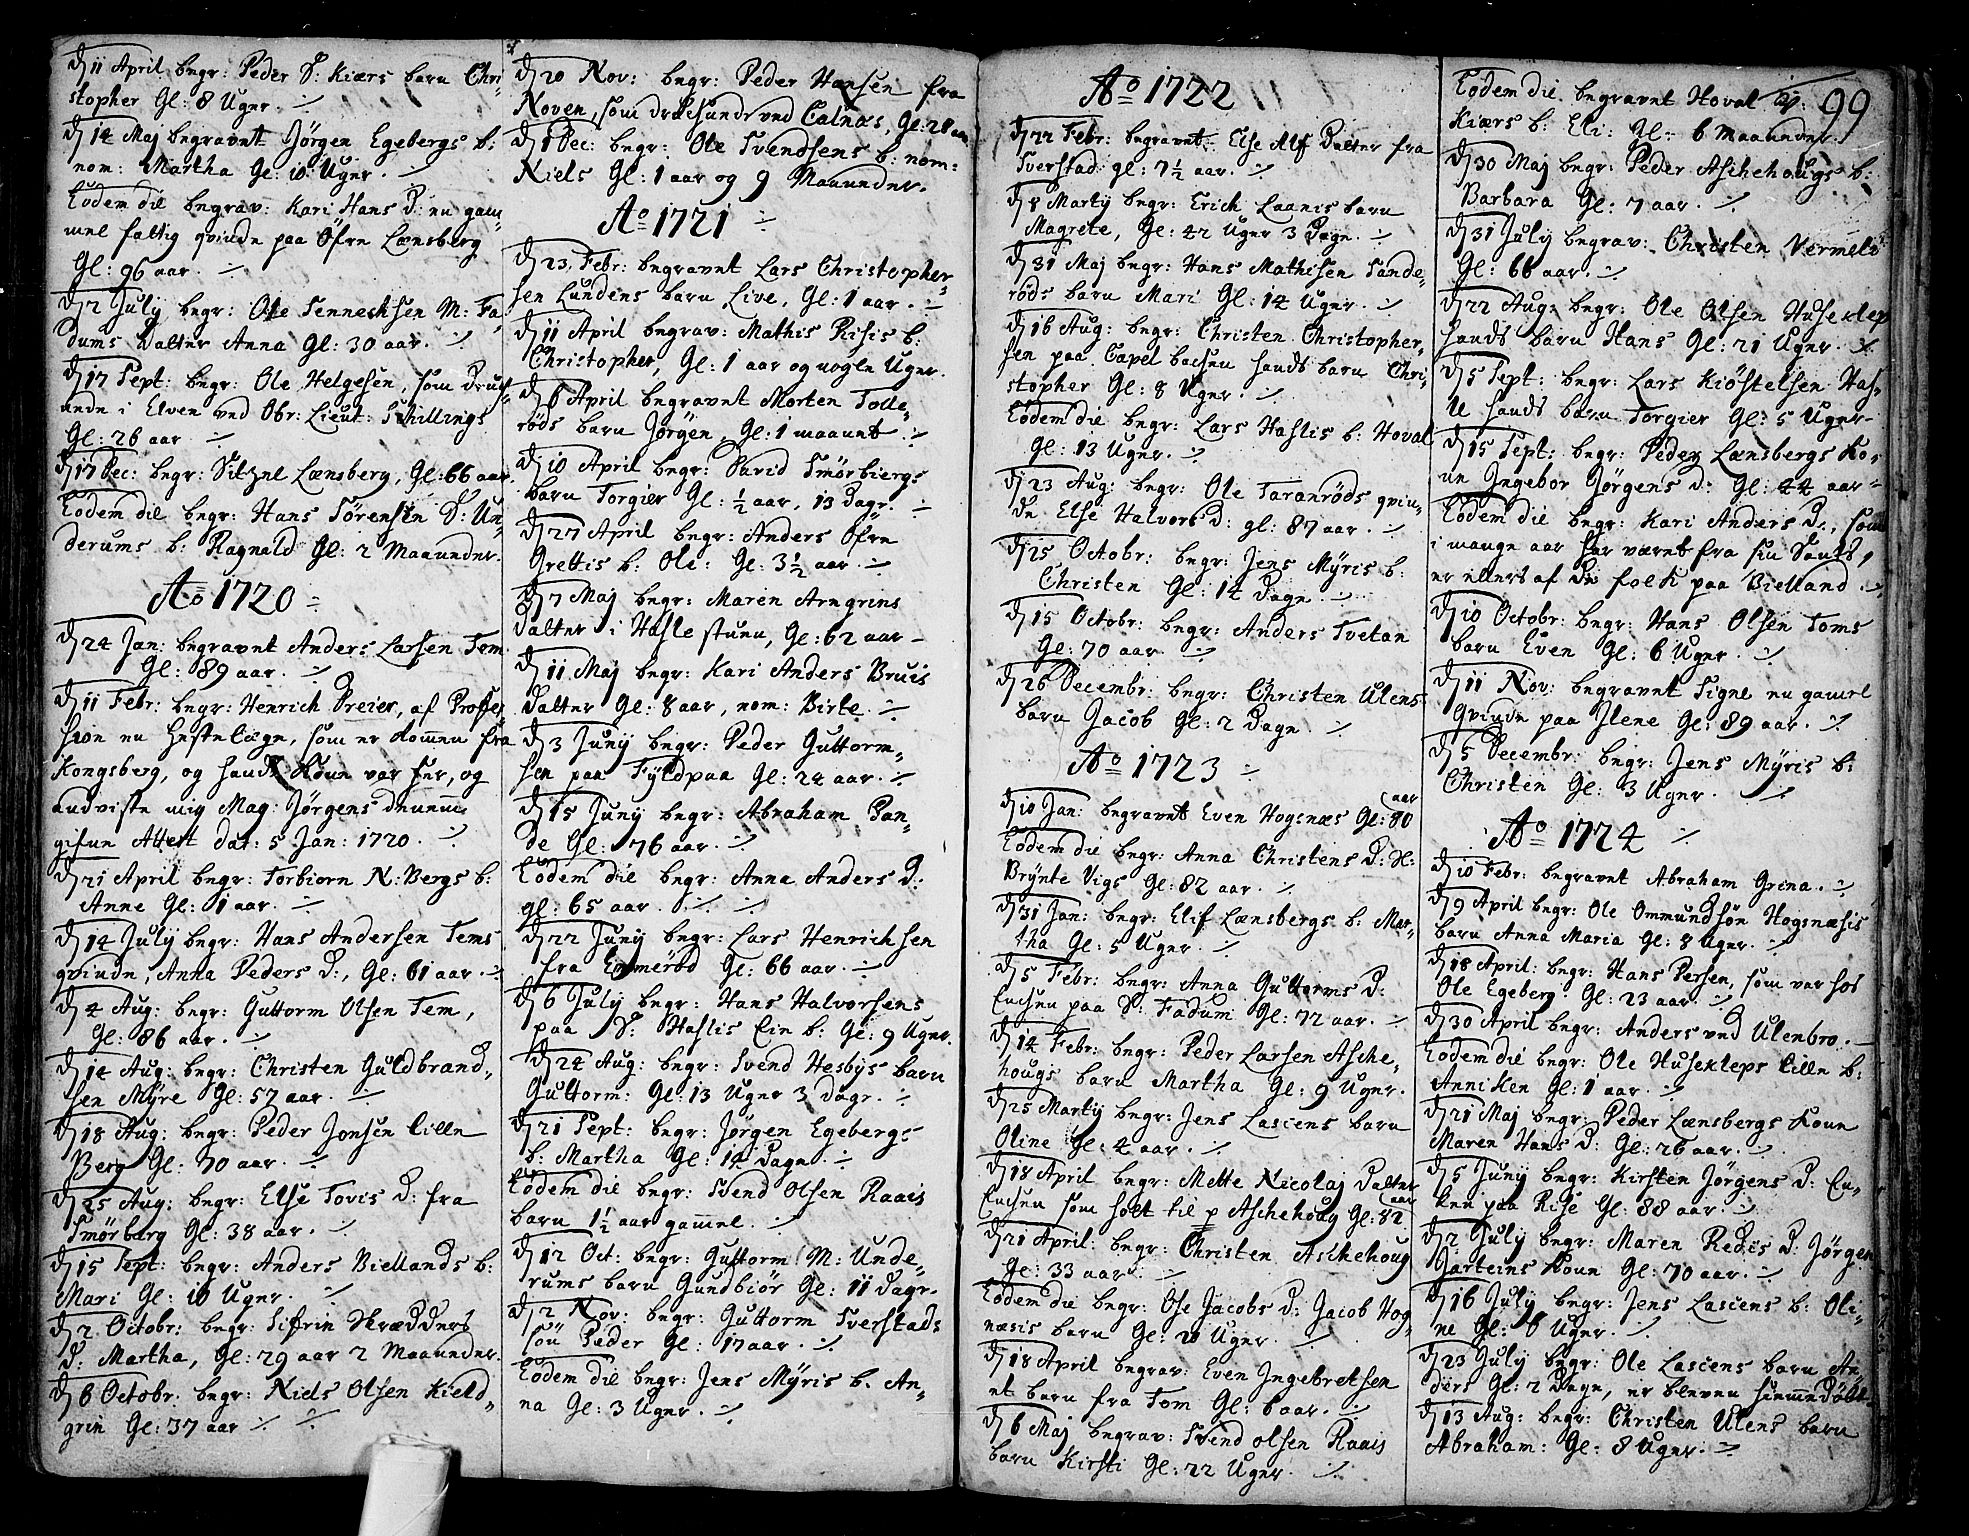 d 11 April begr: Peder S: Kiærs barn Chri-
stopher Gl: 8 Uger.
d 14 Maj begravet Jörgen Egebergs b:
nom: Martha Gl: 10 Uger.
Eodem die begrav: Kari Hans D: en gam-
mel fattig qvinde paa Öfre Lænsberg
Gl: 96 aar.
d 2 July begr: Ole Tennesksen M: Fa-
dums datter Anna Gl: 30 aar.
d 17 Sept: begr: Ole Helgesen, som druch-
nede i Elven ved Obr: Lieut: Schillings
Gl: 26 aar
d 17 Dec: begr: Sitzel Lænsberg, Gl: 66 aar.
Eodem die begr: Hans Sörensen S: Un-
derums b: Ragnald Gl: 2 Maaneder.
Ao 1720
d 24 Jan: begravet Anders Larsen Tem
Gl: 89 aar.
d 11 Febr: begr: Henrich Dreier, af Profes-
sion en hestelæge, som er kommen fra
Kongsberg, og hands Kone var her, og
andviste mig Mag: Jörgens
gifne Attest dat: 5 Jan: 1720.
d 21 April begr: Torbiorn N: Bergs b:
Anne Gl: 1 aar.
d 14 July begr: Hans Andersen Tems
qvinde, Anna Peders D:, Gl: 61 aar.
d 4 Aug: begr: Guttorm Olsen Tem,
Gl: 86 aar.
d 14 Aug: begr: Christen Guldbrand-
sen Myre Gl: 57 aar.
d 18 Aug: begr: Peder Jonsen Lille
Berg Gl: 70 aar.
d 25 Aug: begr: Else Tovis D: fra
Smörberg Gl: 38 aar.
d 15 Sept: begr: Anders Biellands b:
Mari Gl: 10 Uger.
d 2 Octobr: begr: Sifrin Skrædders
D: Martha, Gl: 29 aar 2 Maaneder.
d 6 Octobr: begr: Niels Olsen Kield-
grin Gl: 37 aar
d 20 Nov: begr: Peder Hansen fra
Noven, som ved Calnæs, Gl: 28 aar
d 1 Dec: begr: Ole Svendsens b: nom:
Niels Gl: 1 aar og 9 Maaneder.
Ao 1721
d 23 Febr: begravet Lars Christopher-
sen Lundens barn Live, Gl: 1 aar.
d 11 April begrav: Mathis Risis b:
Christopher, Gl: 1 aar og nogle Uger.
d 6 April begravet Morten Tolle-
röds barn Jörgen, Gl: 1 maanet
d 10 April begr: David Smörbergs
barn Torgier Gl: ½ aar, 13 Dage.
d 27 April begr: Anders Öfre
Grettis b: Ole: Gl: 3½ aar.
d 7 Maj begr: Maren Arngrins
datter i Haslestuen, Gl: 62 aar
d 11 Maj begr: Kari Anders Bruis
datter Gl: 8 aar, nom: Birte.
d 3 Juny begr: Peder Guttorm-
sen paa Fyldpaa Gl: 24 aar.
d 15 Juny begr: Abraham Pan-
de Gl: 76 aar.
Eodem die begr: Anna Anders D:
gl: 65 aar.
d 22 Juny begr: Lars Henrichsen
fra Emmeröd Gl: 66 aar.
d 6 July begr: Hans Halvorsens
paa S: Haslis Eie b: Gl: 9 Uger.
d 24 Aug: begr: Svend Hesbys barn
Guttorm: Gl: 13 Uger 3 dage.
d 21 Sept: begr: Jörgen Egebergs
b: Martha Gl: 14 Dage
Eodem die begr: Svend Olsen Raais
barn 1½ aar gammel.
d 12 Oct: begr: Guttorm M: Unde-
rums barn Gundbiör Gl: 11 Dage.
d 2 Nov: begr: Guttorm Sverstads
sön Peder Gl: 17 aar.
Eodem die begr: Jens Myris b. An-
na Gl: 3 Uger.
Ao 1722
d 22 Febr: begravet Else Alf Datter fra
Sverstad gl: 7½ aar.
d 8 Marty begr: Erich Laanis barn
Magrete, Gl: 42 Uger 3 Dage.
d 31 Maj begr: Hans Mathisen Sande-
röds barn Mari Gl: 14 Uger.
d 16 Aug: begr: Christen Christopher-
sen paa Capel bacsen hands barn Chri-
stopher Gl: 8 Uger.
Eodem die begr: Lars Haslis b: Hoval
Gl: 13 Uger.
d 23 Aug: begr: Ole Taranröds qvin-
de Else Halvors D: gl: 87 aar.
d 25 Octobr: begr: Jens Myris b:
Christen Gl: 14 Dage
d 15 Octobr: begr: Anders Tvetan
Gl: 70 aar
d 26 Decembr: begr: Christen Ulens
barn Jacob Gl: 2 Dage
Ao 1723
d 10 Jan: begravet Even Hogsnæs Gl: 80 aar
Eodem die begr: Anna Christens D: H:
Brynte Vigs Gl: 82 aar.
d 31 Jan: begr: Elif Lænsbergs b: Mar-
tha Gl: 5 Uger.
d 5 Febr: begr: Anna Guttorms D:
Encken paa S: Fadum Gl: 72 aar.
d 14 Febr: begr: Peder Larsen Asche-
hougs barn Martha Gl: 9 Uger.
d 25 Marty begr: Jens Lasciens barn
Oline Gl: 4 aar.
d 18 April begr: Mette Nicolaj Datter
Encken som holt til p Aschehoug Gl: 82 aar
d 21 April: begr: Christen Aschehoug
Gl: 33 aar.
Eodem die begr: Ose Jacobs D: Jacob Hog-
næsis barn Gl: 20 Uger.
d 18 April begrav: Even Ingebretsen
et barn fra Tom Gl: 6 aar.
d 6 Maj begrav: Svend Olsen Raais
barn Kirsti Gl: 22 Uger.
99
Eodem die begravet Hoval
Kiærs b: Eli: Gl: 6 maaneder.
d 30 Maj begr: Peder Aschehougs b:
Barbara Gl: 7 aar.
d 31 July begrav: Christen Vermelö
Gl: 66 aar.
d 22 Aug: begr: Ole Olsen Huseklep
hands barn Hans Gl: 21 Uger.
d 5 Sept: begr: Lars Kiöstelsen Has-
le hands barn Torgier Gl: 5 Uger
d 15 Sept: begr: Peder Lænsbergs Ko-
ne Ingebor Jörgens D: Gl: 44 aar
Eodem die begr: Kari Anders D:, som
i mange aar har været fra sin Sands,
er ellers af de folk paa Bielland.
d 10 Octobr: begr: Hans Olsen Toms
barn Even Gl: 6 Uger.
d 11 Nov: begravet Signe en gamel
qvinde paa Ilene Gl: 89 aar.
d 5 Decembr: begr: Jens Myris b:
Christen Gl: 3 Uger.
Ao 1724
d 10 Febr: begravet Abraham Grina.
d 9 April begr: Ole Ommundsön Hogsnæsis
barn Anna Maria Gl: 8 Uger.
d 18 April: begr: Hans Persen, som var hos
Ole Egeberg Gl: 23 aar.
d 30 April begr: Anders ved Ulenbro.
Eodem die begr: Ole Husekleps Lille b:
Anniken Gl: 1 aar.
d 21 Maj begr: Peder Lænsbergs Kone
Maren Hans D: Gl: 26 aar.
d 5 Juny begr: Kirsten Jörgens D: En-
ken paa Rise Gl: 88 aar.
d 2 July begr: Maren Redis D: Jörgen
Jarteins Kone Gl: 70 aar.
d 16 July begr: Jens Lasciens b: Oli-
ne Gl: 6 Uger.
d 23 July begr: Ole Lasciens barn An-
ders Gl: 2 Dage, er bleven hiemmedöbt.
d 13 Aug: begr: Christen Ulens barn
Abraham: Gl: 8 Uger.